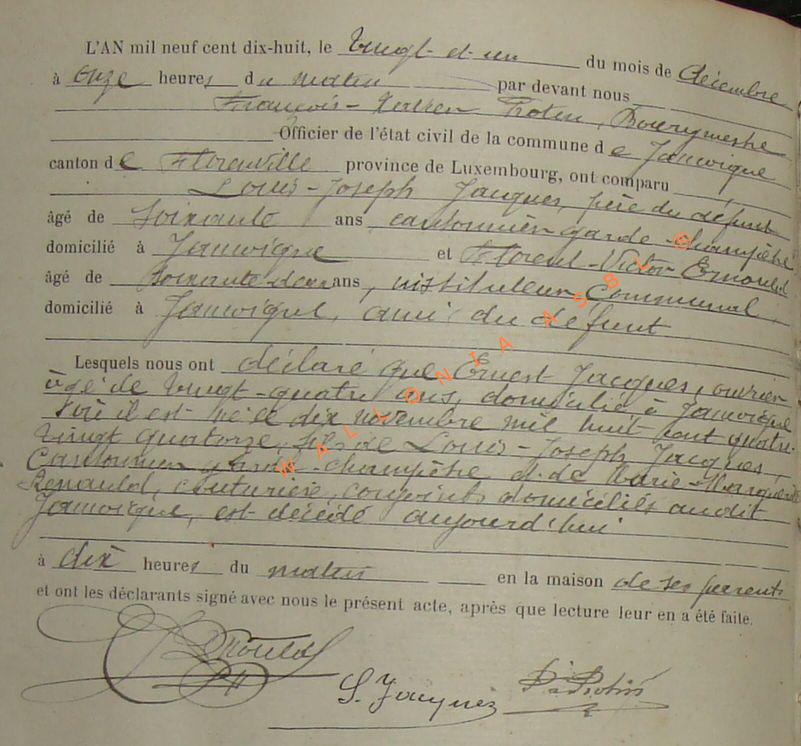 L'AN mil neuf cent dix-huit, le Vingt et un du mois de décembre
à onze heures du matin par devant nous
François- Bourgmestre
Officier de l'état civil de la commune de Jamoigne
canton de Florenville province de Luxembourg, ont comparu
Louis-Joseph Jacques, père du défunt
âgé de Soixante ans, cantonnier garde-champêtre
domicilié à Jamoigne et Florent-Victor Ernould
âgé de soixante-deux ans, instituteur communal,
domicilié à Jamoigne, ami du défunt
Lesquels nous ont déclaré que Ernest Jacques, ouvrier
âgé de Vingt-quatre ans, domicilié à Jamoigne
où il est né le dix novembre mil huit cent quatre-
vingt quatorze, fils de Louis-Joseph Jacques,
Cantonnier garde-champêtre et de Marie-Marguerite
Renauld, couturière, conjoints domiciliés audit
Jamoigne, est décédé aujourd'hui
à dix heures du matin en la maison de ses parents
et ont les déclarants signé avec nous le présent acte, après que lecture leur en a été faite.
Ernould
Jacques
WALLONIA ASBL ©